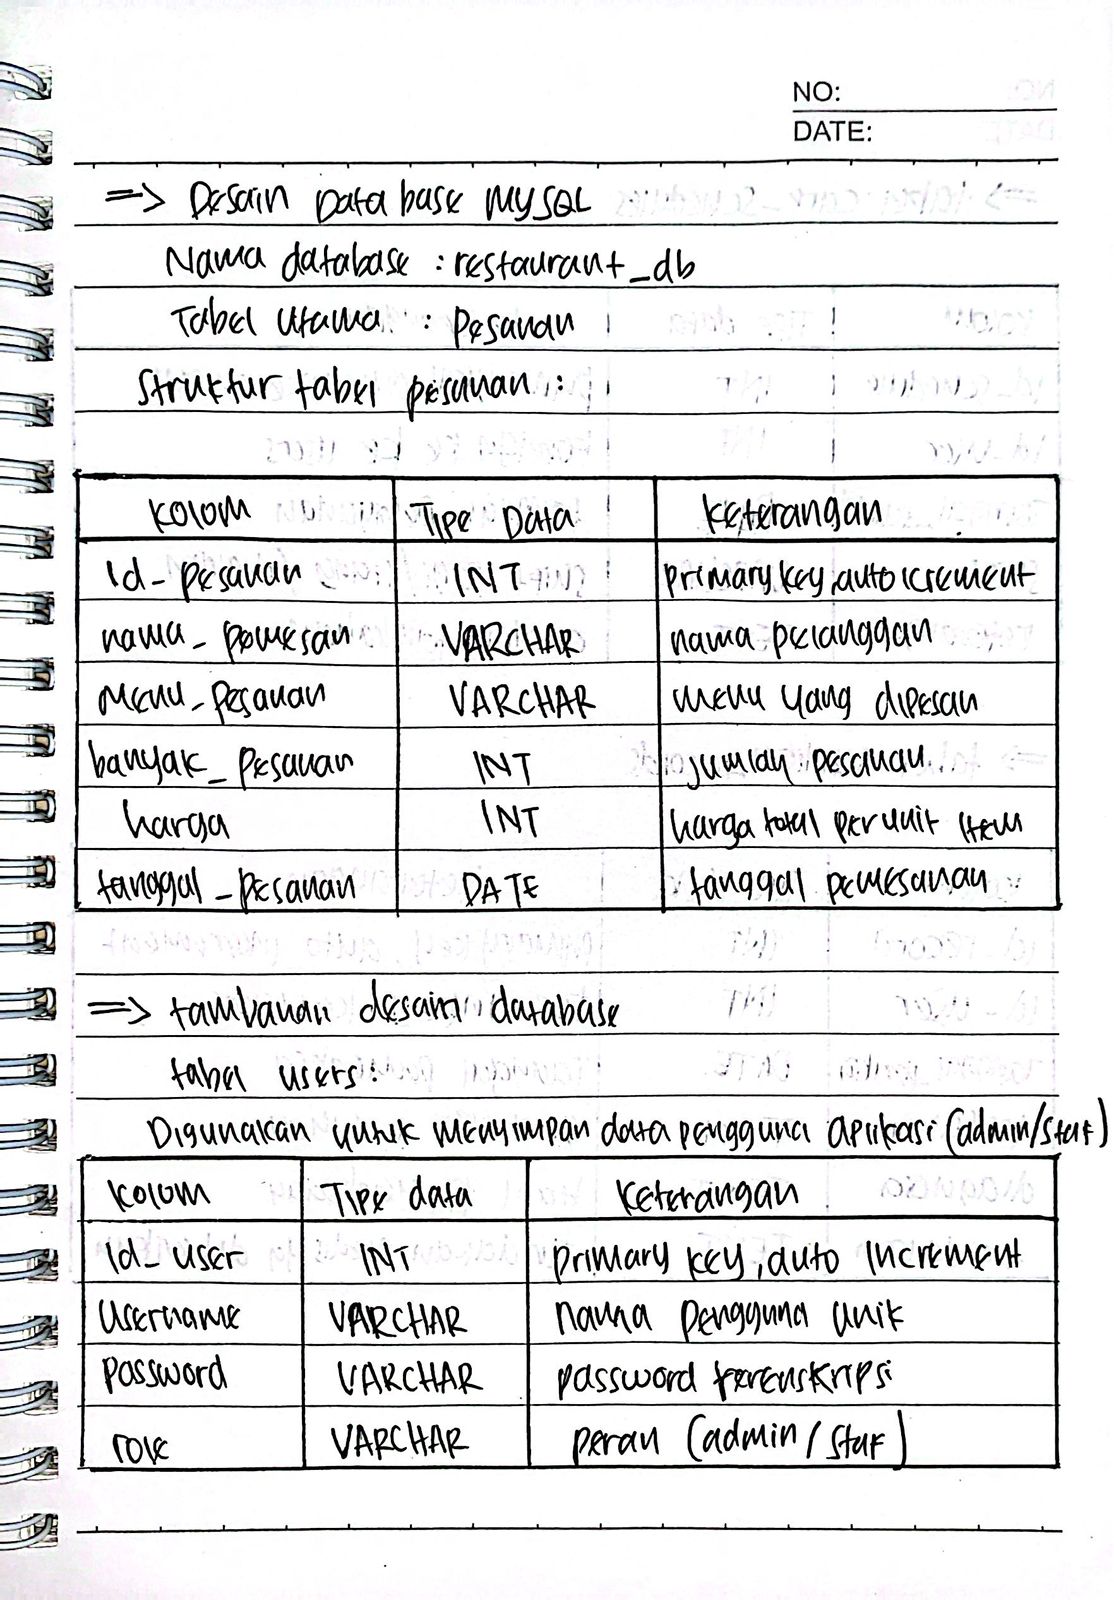 NO:
DATE:
=> Desain Database MYSQL
Nama database : restaurant_db
Tabel utama : pesanan
Struktur tabel pesanan :
Kolom Tipe Data Keterangan
Id_pesanan INT primary key, auto icrement
nama_pemesan VARCHAR nama pelanggan
Menu_pesanan VARCHAR menu yang dipesan
banyak_pesanan INT jumlah pesanan
harga INT harga total per unit item
tanggal_pesanan DATE tanggal pemesanan
=> tambahan desain database
tabel users:
Digunakan untuk menyimpan data pengguna aplikasi (admin/staf)
Kolom Tipe data Keterangan
Id_user INT primary key, auto increment
Username VARCHAR nama pengguna unik
Password VARCHAR password terenskripsi
role VARCHAR peran (admin/staf)